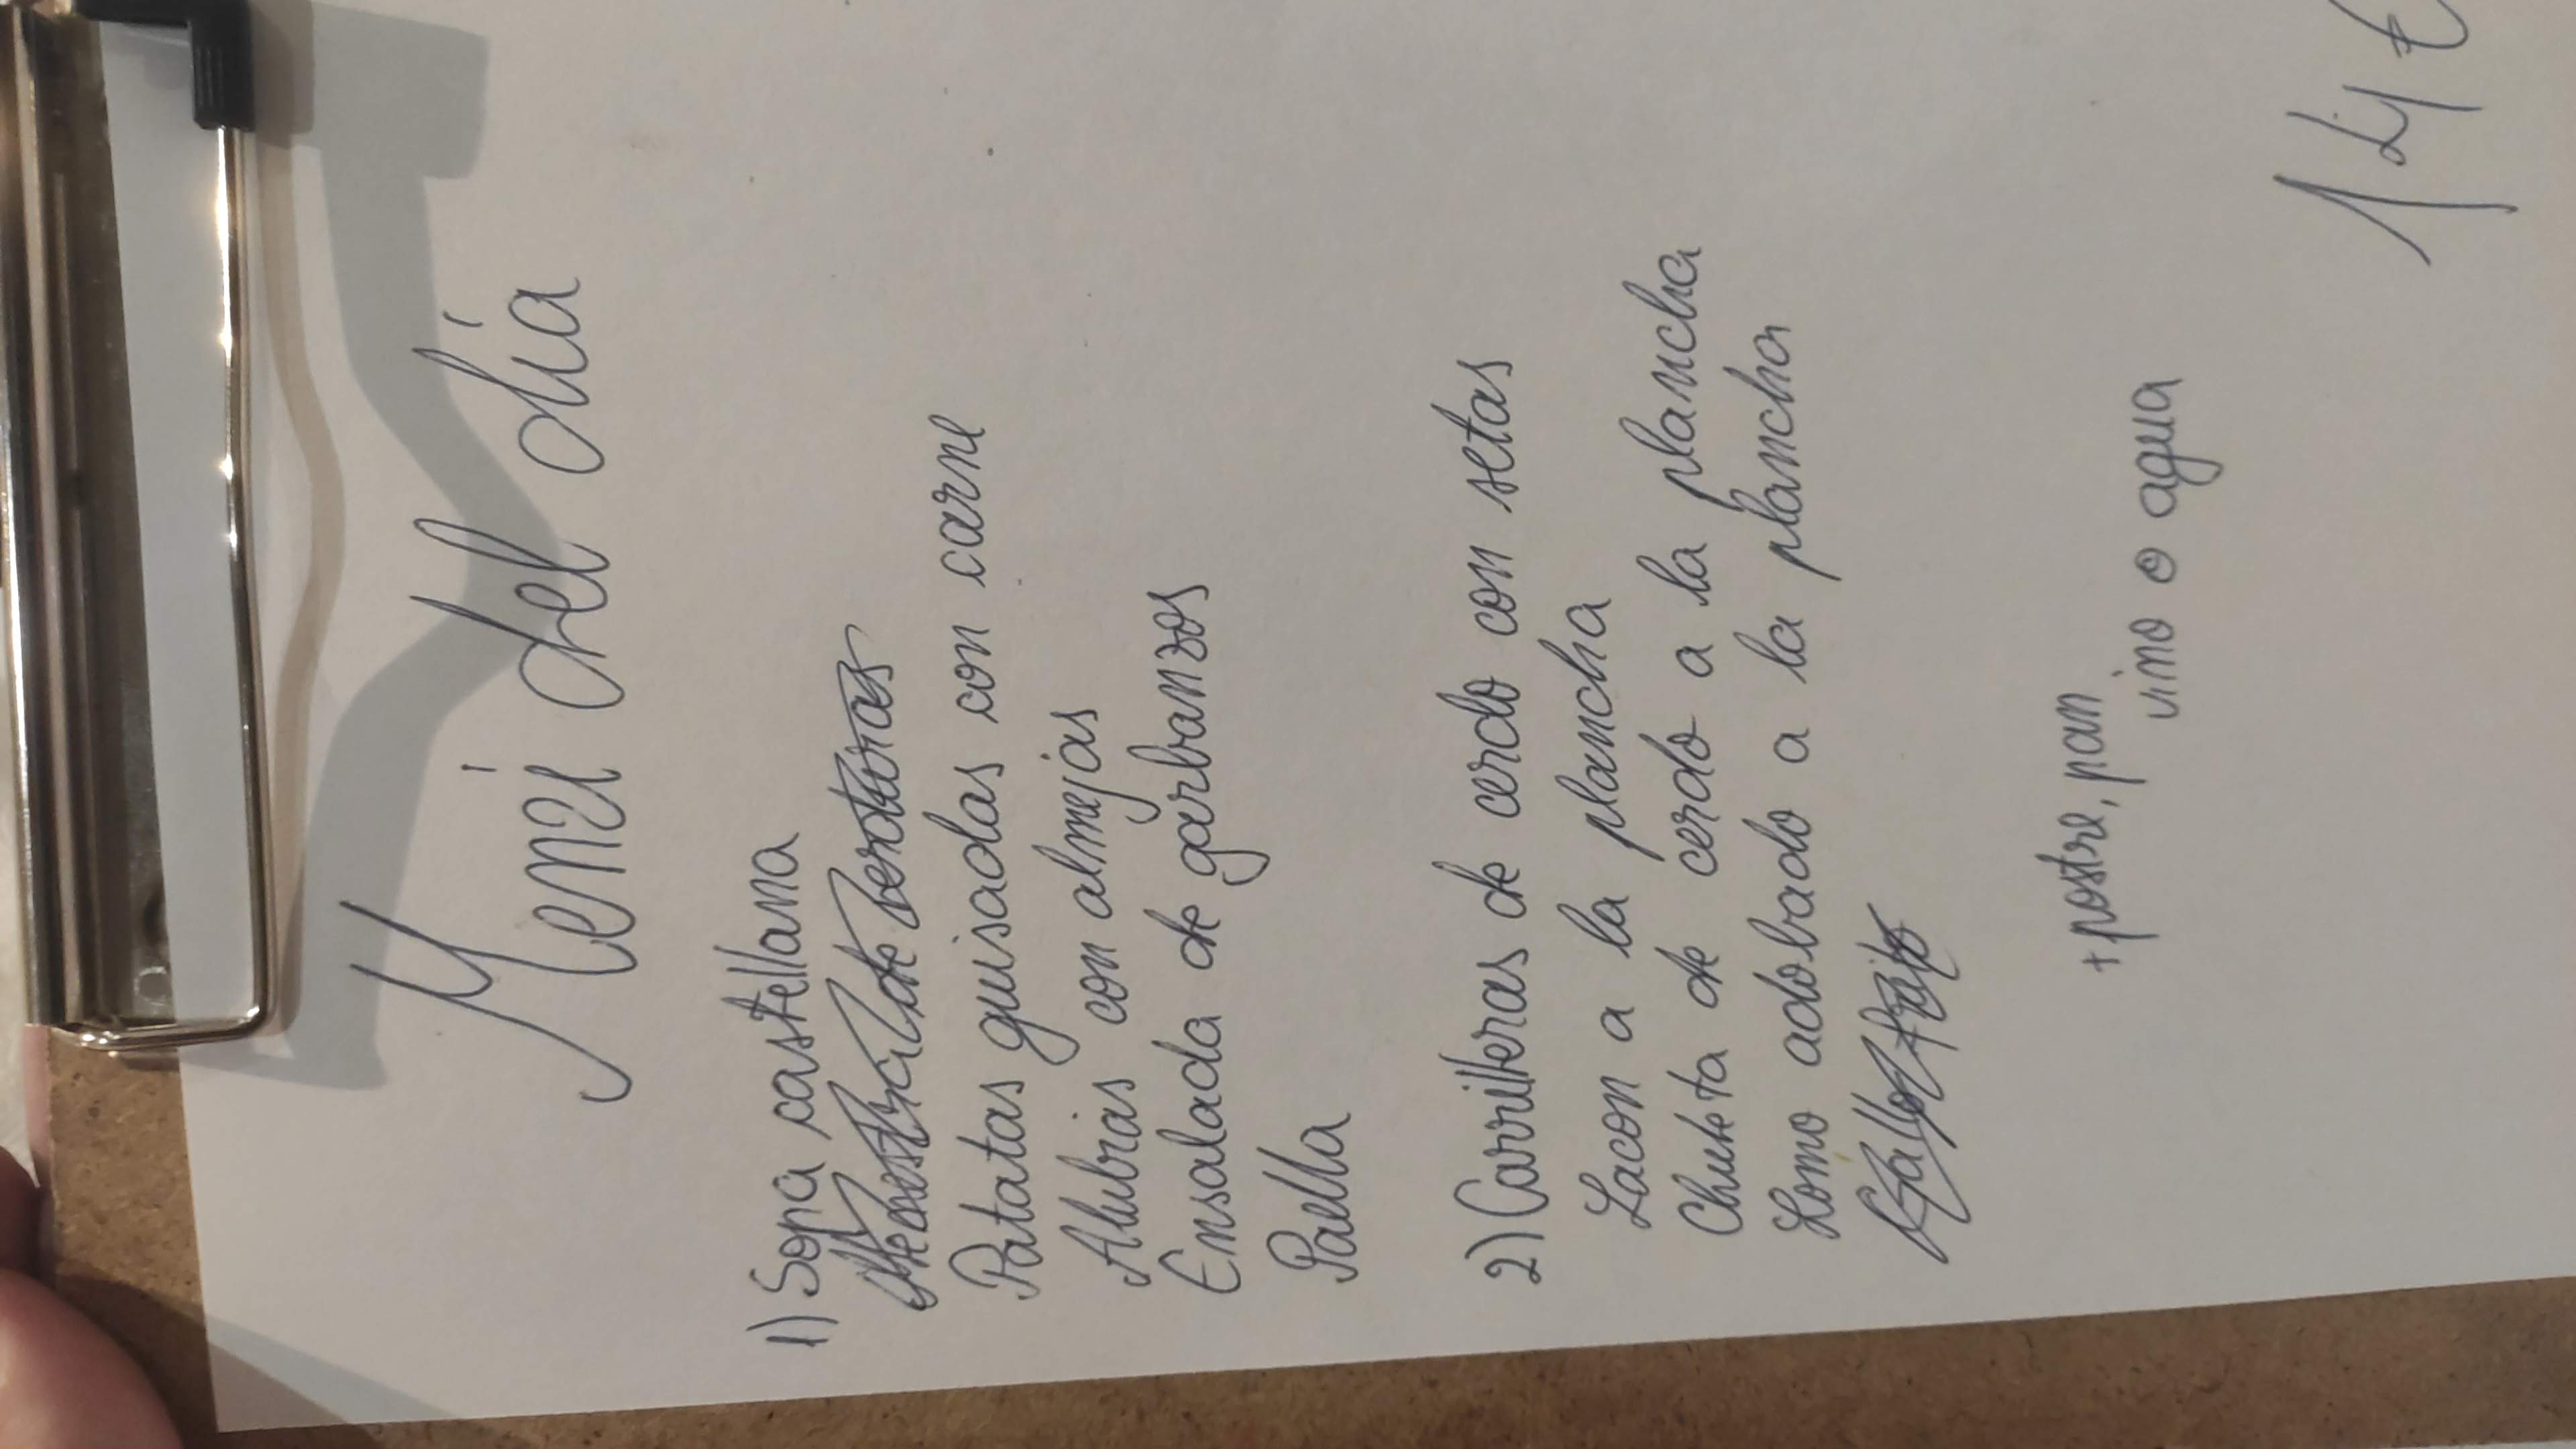 Menú del día
1) Sopa castellana
Menestra de verduras
Patatas guisadas con carne
Alubias con almejas
Ensalada de garbanzos
Paella
2) Carrilleras de cerdo con setas
Lacon a la plancha
Chuleta de cerdo a la plancha
Lomo adobado a la plancha
Gallo frito
+ postre, pan
vino o agua
14 €